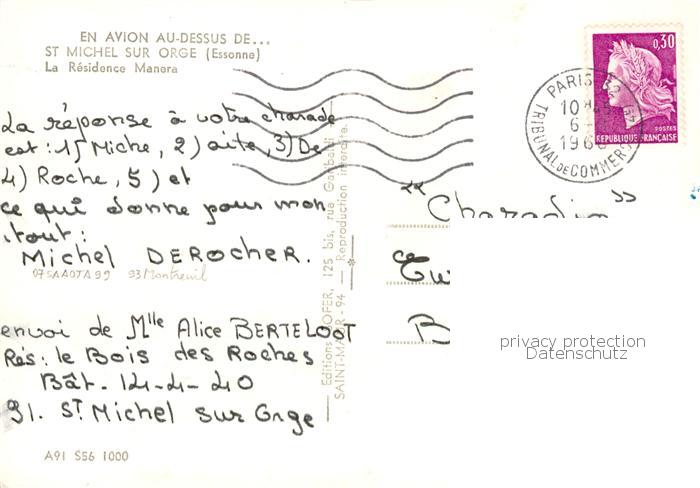 EN AVION AU-DESSUS DE...
ST MICHEL SUR ORGE (Essonne)
La Résidence Manera
La réponse à votre charade
est : 1) Miche, 2) aile, 3) De
4) Roche, 5) et
ce qui donne pour mon
tout :
Michel DEROCHER.
93 Montreuil
envoi de Mlle Alice BERTELOOT
Rés : le Bois des Roches
Bât. 14-4-40
91. ST Michel sur Orge
A91 S56 1000
125 bis, rue Garibaldi
SAINT-MAUR - 94 — Reproduction interdite.
0,30
POSTES
REPUBLIQUE FRANÇAISE
PARIS
TRIBUNAL DE COMMERCE
"Charadin"
B
privacy protection
Datenschutz